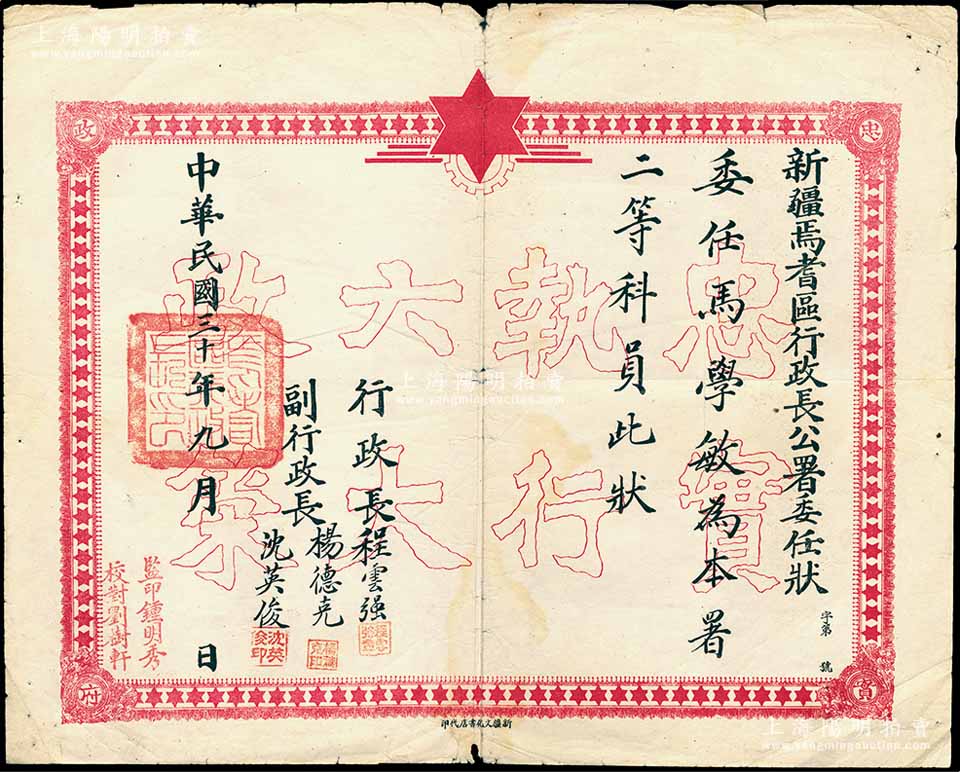 新疆焉耆區行政長公署委任狀
字第 號
委任馬學敏為本署
二等科員此狀
行政長程雲强
副行政長楊德克
沈英俊
中華民國三十年九月 日
監印鍾明秀
校對劉樹軒
忠實
執行
六大
政策
忠
實
政
府
沈英
俊印
新疆文化書店代印
上海陽明拍賣
www.yangmingauction.com
上海陽明拍賣
www.yangmingauction.com
上海陽明拍賣
www.yangmingauction.com